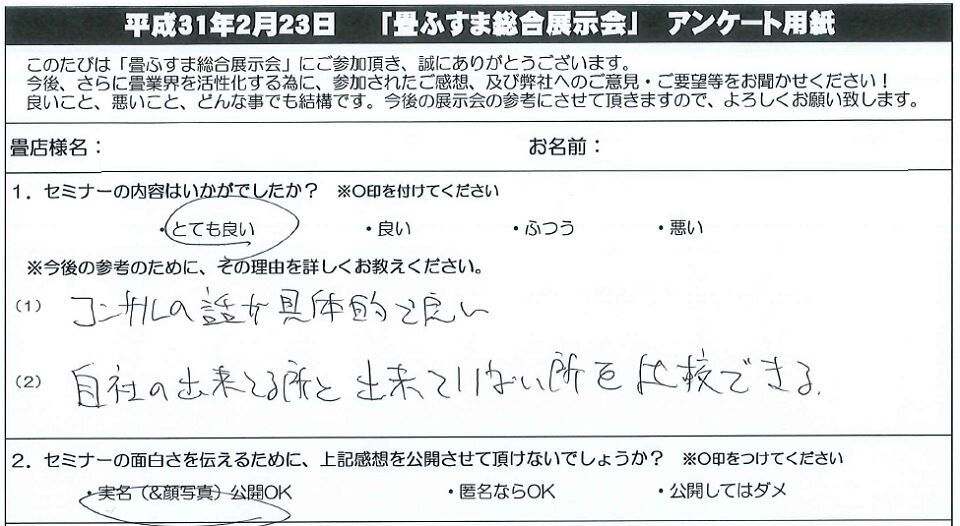 平成31年2月23日 「畳ふすま総合展示会」 アンケート用紙
このたびは「畳ふすま総合展示会」にご参加頂き、誠にありがとうございます。
今後、さらに畳業界を活性化する為に、参加されたご感想、及び弊社へのご意見・ご要望等をお聞かせください！
良いこと、悪いこと、どんな事でも結構です。今後の展示会の参考にさせて頂きますので、よろしくお願い致します。
畳店様名： お名前：
1．セミナーの内容はいかがでしたか？ ※〇印を付けてください
・とても良い ・良い ・ふつう ・悪い
※今後の参考のために、その理由を詳しくお教えください。
(1) コンサルの話が具体的で良い
(2) 自社の出来てる所と出来ていない所を比較できる.
2．セミナーの面白さを伝えるために、上記感想を公開させて頂けないでしょうか？ ※〇印をつけてください
・実名（&顔写真）公開OK ・匿名ならOK ・公開してはダメ